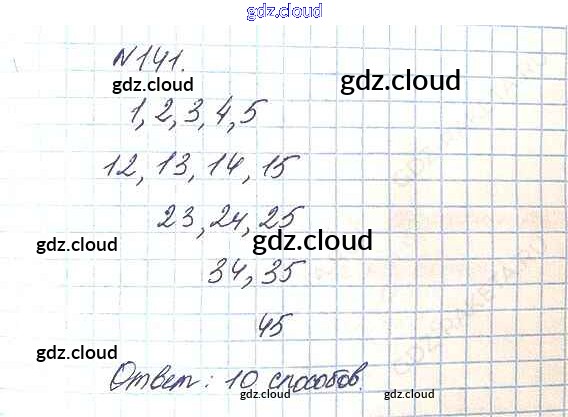 gdz.cloud
N141.
gdz.cloud gdz.cloud
1, 2, 3, 4, 5
12, 13, 14, 15
23, 24, 25
gdz.cloud gdz.cloud
34, 35
45
gdz.cloud gdz.cloud
Ответ: 10 способов.
gdz.cloud gdz.cloud